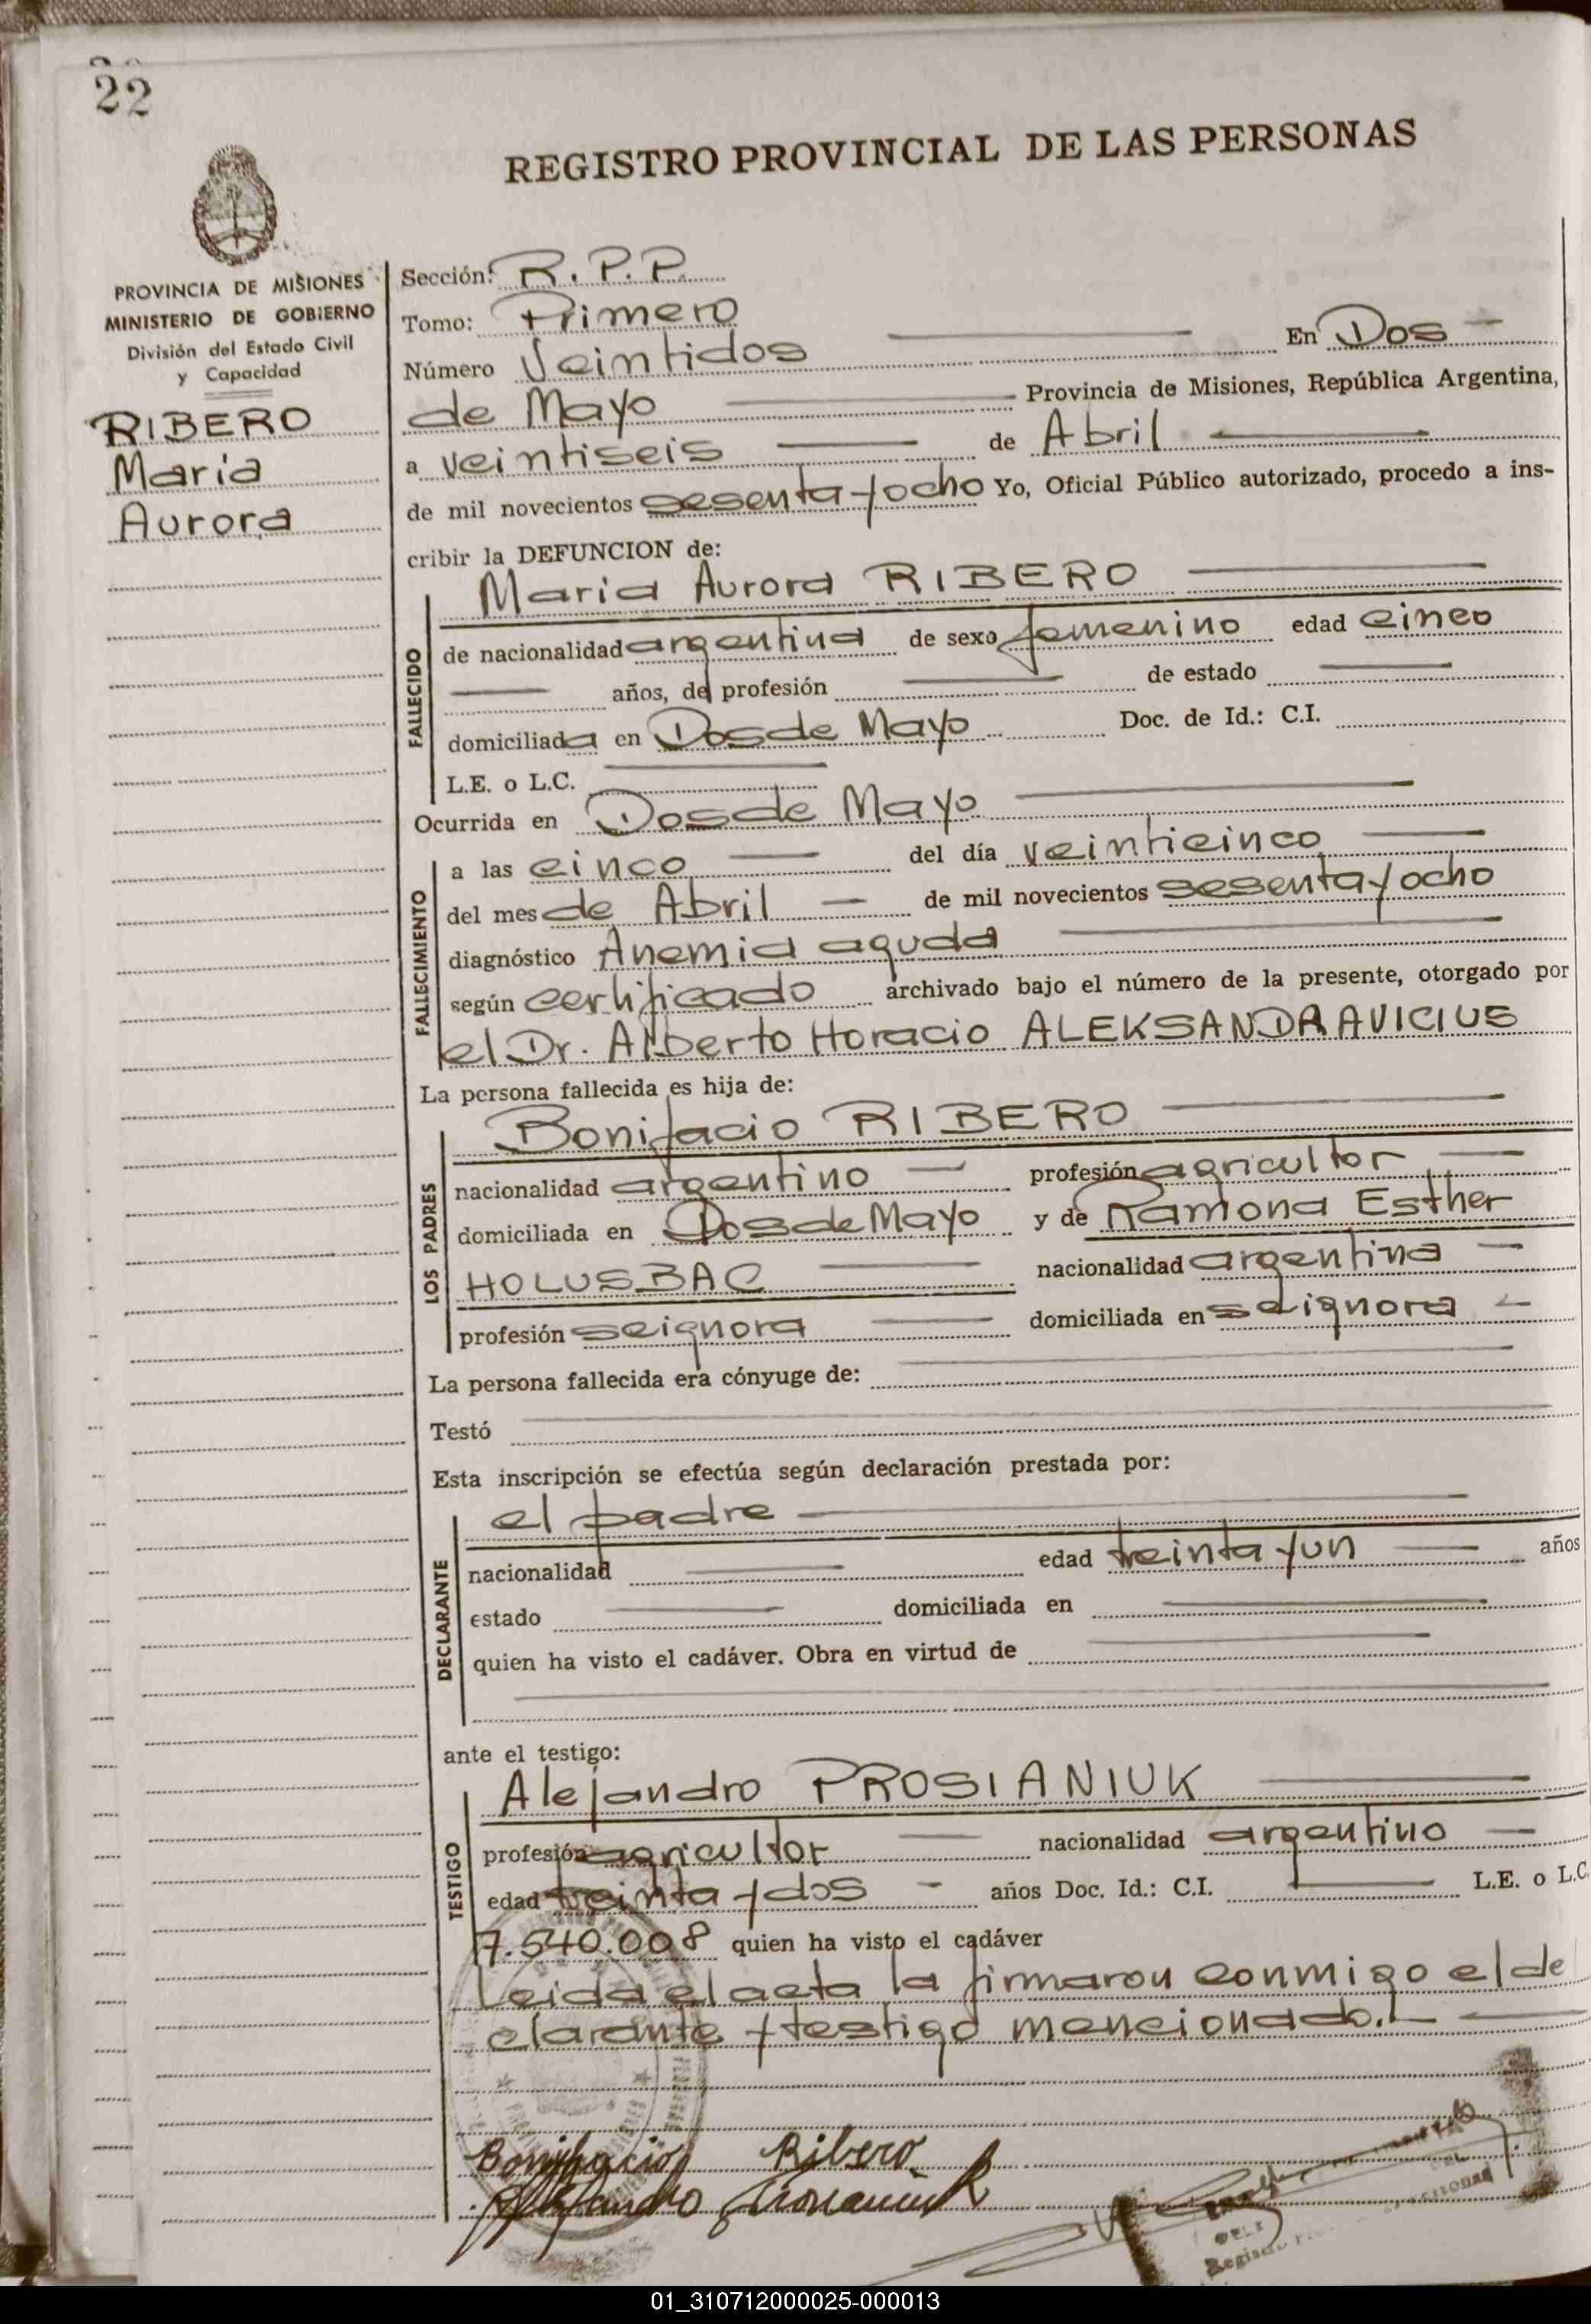 22
REGISTRO PROVINCIAL DE LAS PERSONAS
PROVINCIA DE MISIONES
MINISTERIO DE GOBIERNO
División del Estado Civil
y Capacidad
RIBERO
Maria
Aurora
Sección: R. P. P.
Tomo: Primero
Número Veintidos En Dos
de Mayo Provincia de Misiones, República Argentina,
a veintiseis de Abril
de mil novecientos sesenta y ocho Yo, Oficial Público autorizado, procedo a ins-
cribir la DEFUNCION de:
Maria Aurora RIBERO
FALLECIDO
de nacionalidad argentina de sexo femenino edad cinco
años, de profesión de estado
domiciliada en Dos de Mayo Doc. de Id.: C.I.
L.E. o L.C.
Ocurrida en Dos de Mayo
FALLECIMIENTO
a las cinco del día veinticinco
del mes de Abril de mil novecientos sesenta y ocho
diagnóstico Anemia aguda
según certificado archivado bajo el número de la presente, otorgado por
el Dr. Alberto Horacio ALEKSANDRAVICIUS
La persona fallecida es hija de:
Bonifacio RIBERO
LOS PADRES
nacionalidad argentino profesión agricultor
domiciliada en Dos de Mayo y de Ramona Esther
HOLUSBAC nacionalidad argentina
profesión seignora domiciliada en seignora
La persona fallecida era cónyuge de:
Testó
Esta inscripción se efectúa según declaración prestada por:
el padre
DECLARANTE
nacionalidad edad treinta y un años
estado domiciliada en
quien ha visto el cadáver. Obra en virtud de
ante el testigo:
Alejandro PROSIANIUK
TESTIGO
profesión agricultor nacionalidad argentino
edad treinta y dos años Doc. Id.: C.I. L.E. o L.C.
7.540.008 quien ha visto el cadáver
Leida el acta la firmaron conmigo el de
clarante y testigo mencionado.
Bonifacio Ribero
01_310712000025-000013